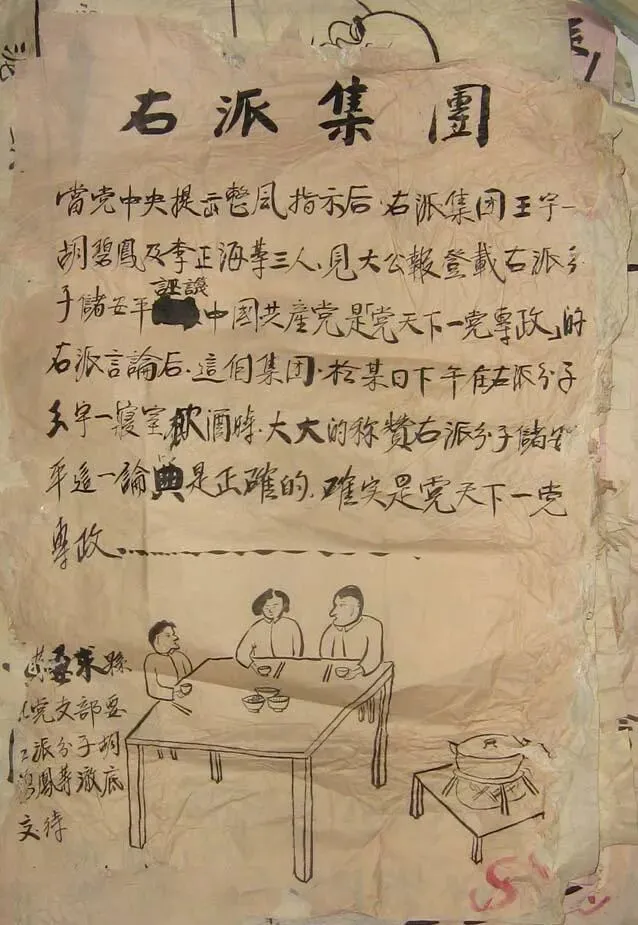 右派集團
當党中央提示整风指示后·右派集团王宇一
胡碧鳳及李正海等三人、見大公報登載右派分
子儲安平誣譏中國共産党是「党天下一党專政」的
右派言論后·這個集团·於某日下午在右派分子
王宇一寢室飲酒時·大大的称贊右派分子儲安
平這一論典是正確的、確实是党天下一党
專政
要求縣
党支部要
派分子胡
鳳等澈底
交待